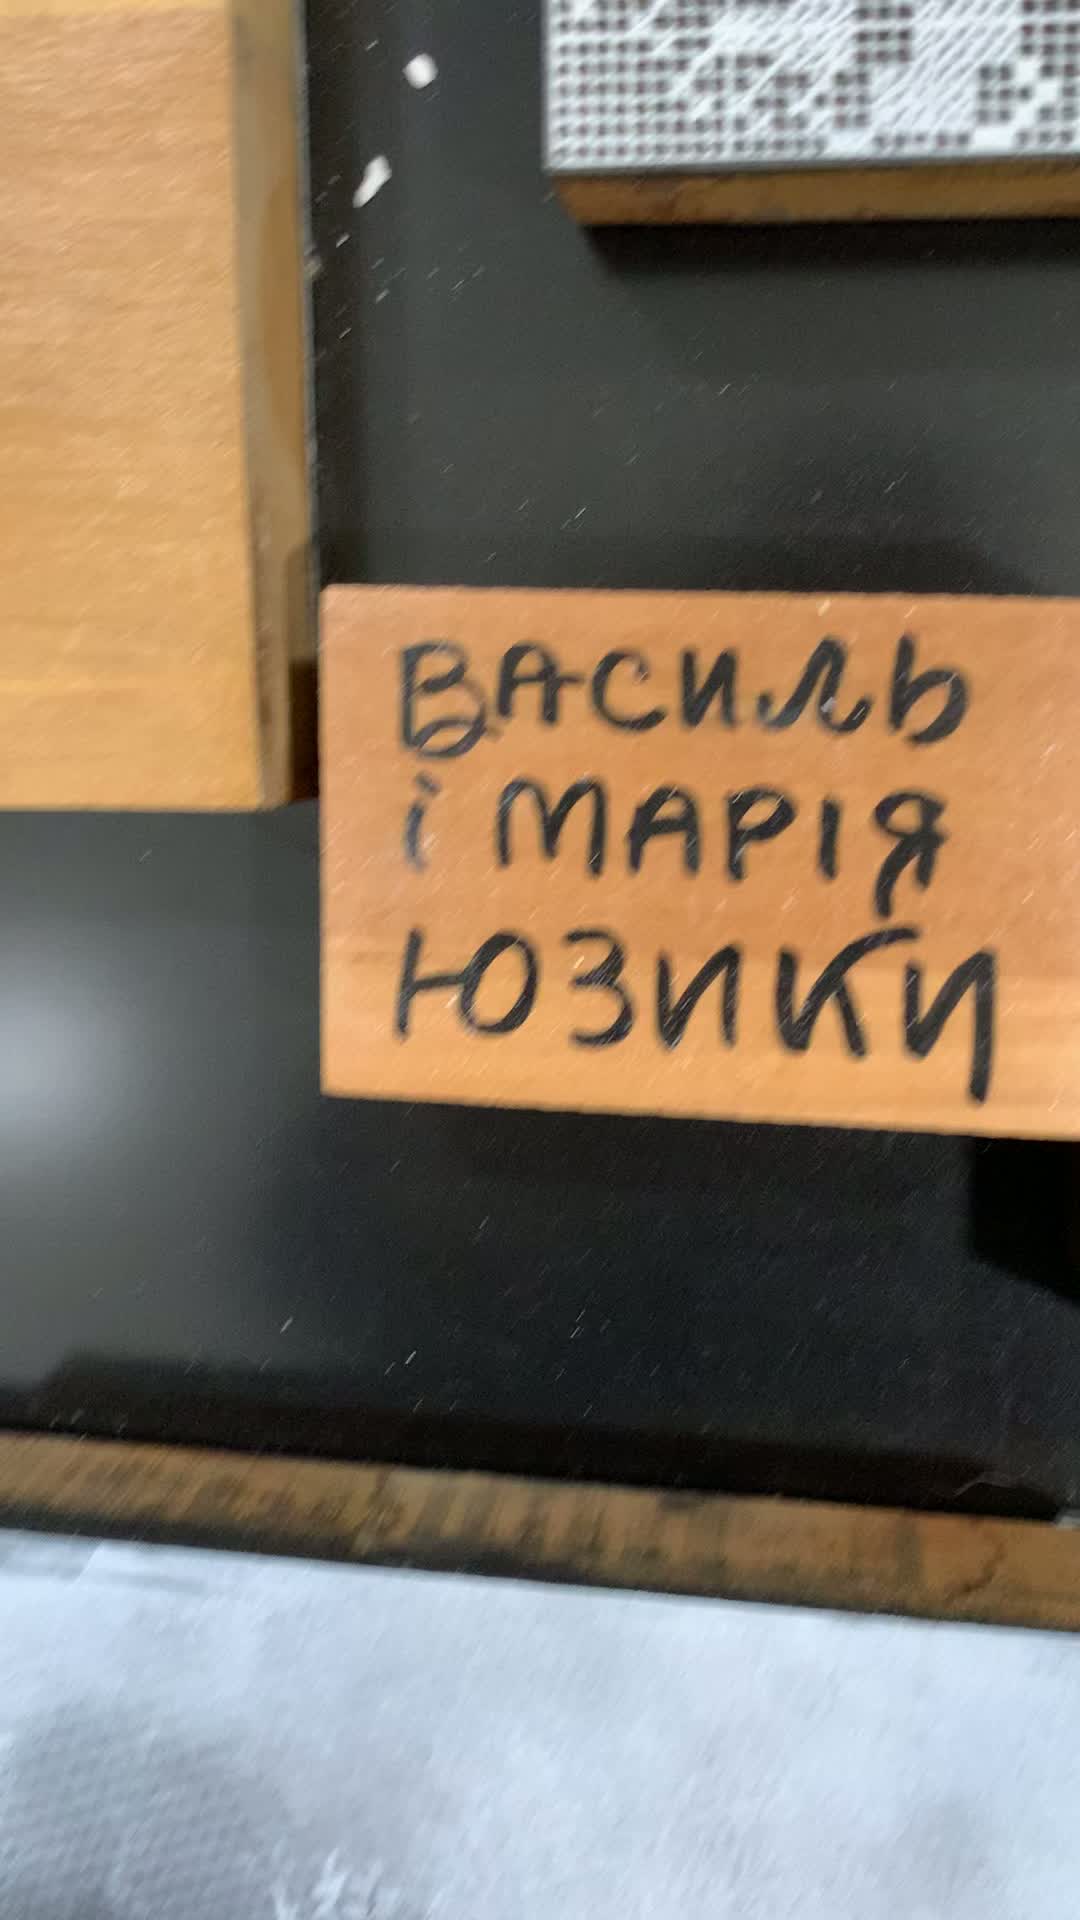 ВАСИЛЬ
і МАРІЯ
ЮЗИКИ